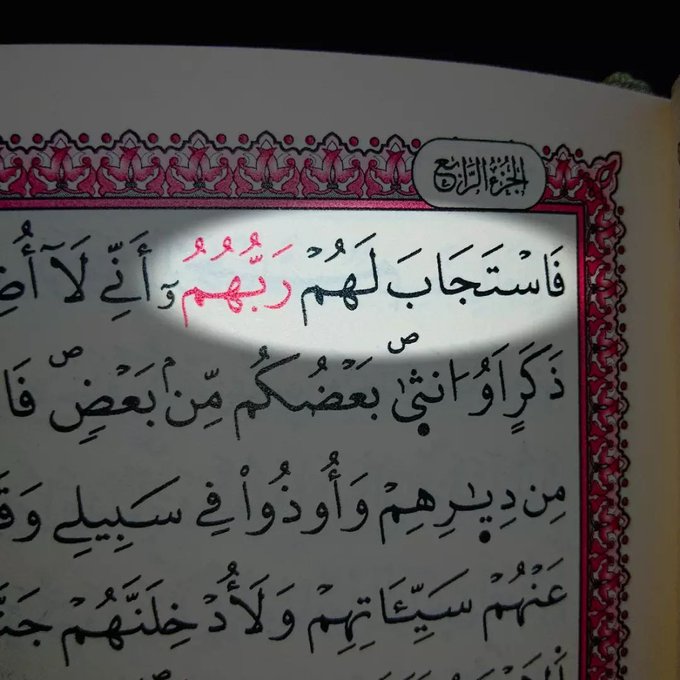 الجزء الرابع ٤
فَاسْتَجَابَ لَهُمْ رَبُّهُمُۥٓ أَنِّي لَآ أُضِ
ذَكَرٍ اَوُ انث۪يٰ بَعْضُكُم مِّنۢ بَعْضٍ فَا
مِن دِيٰ۪رِهِمْ وَأُوذُواْ فِے سَبِيلِے وَقَ
عَنْهُمْ سَيِّـَٔاتِهِمْ وَلَأُدْخِلَنَّهُمْ جَنَّ